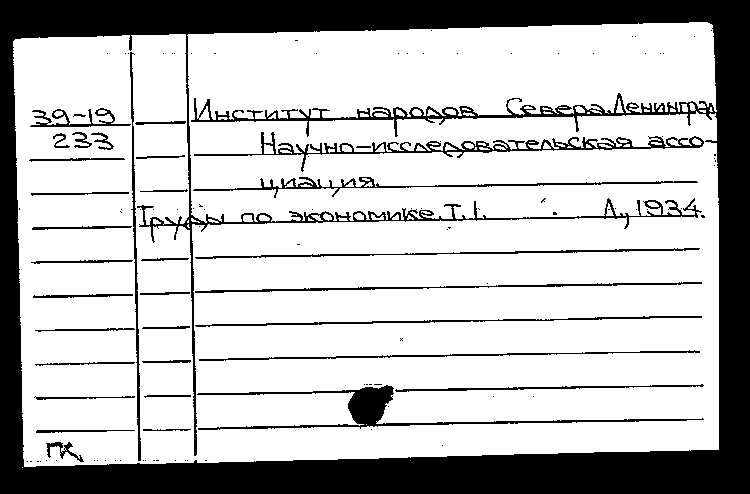 39-19 Институт народов Севера. Ленинград
233 Научно-исследовательская ассо-
циация.
Труды по экономике. Т.1. Л., 1934.
ПК